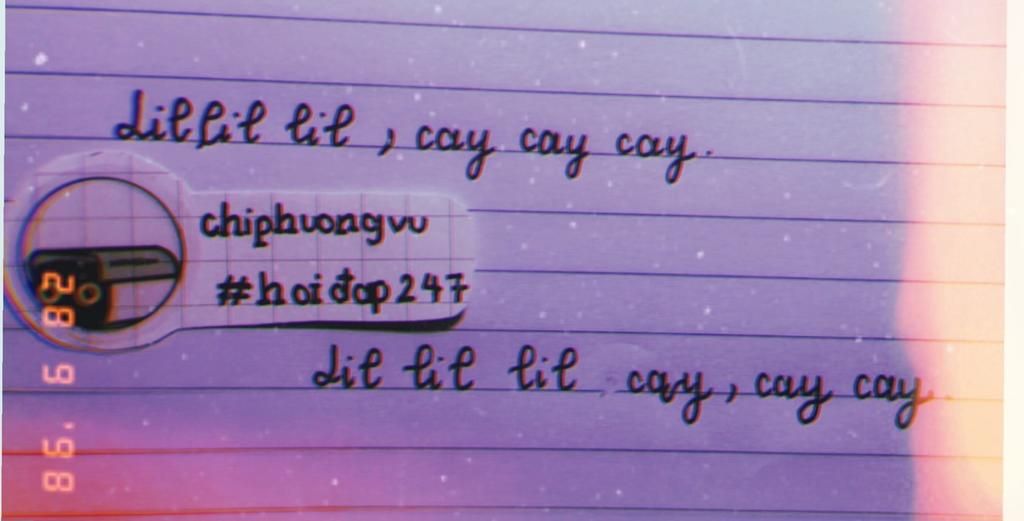 Lil lil lil, cay cay cay.
chiphuongvu
#hoiđap247
Lil lil lil cay, cay cay
86. 6 82